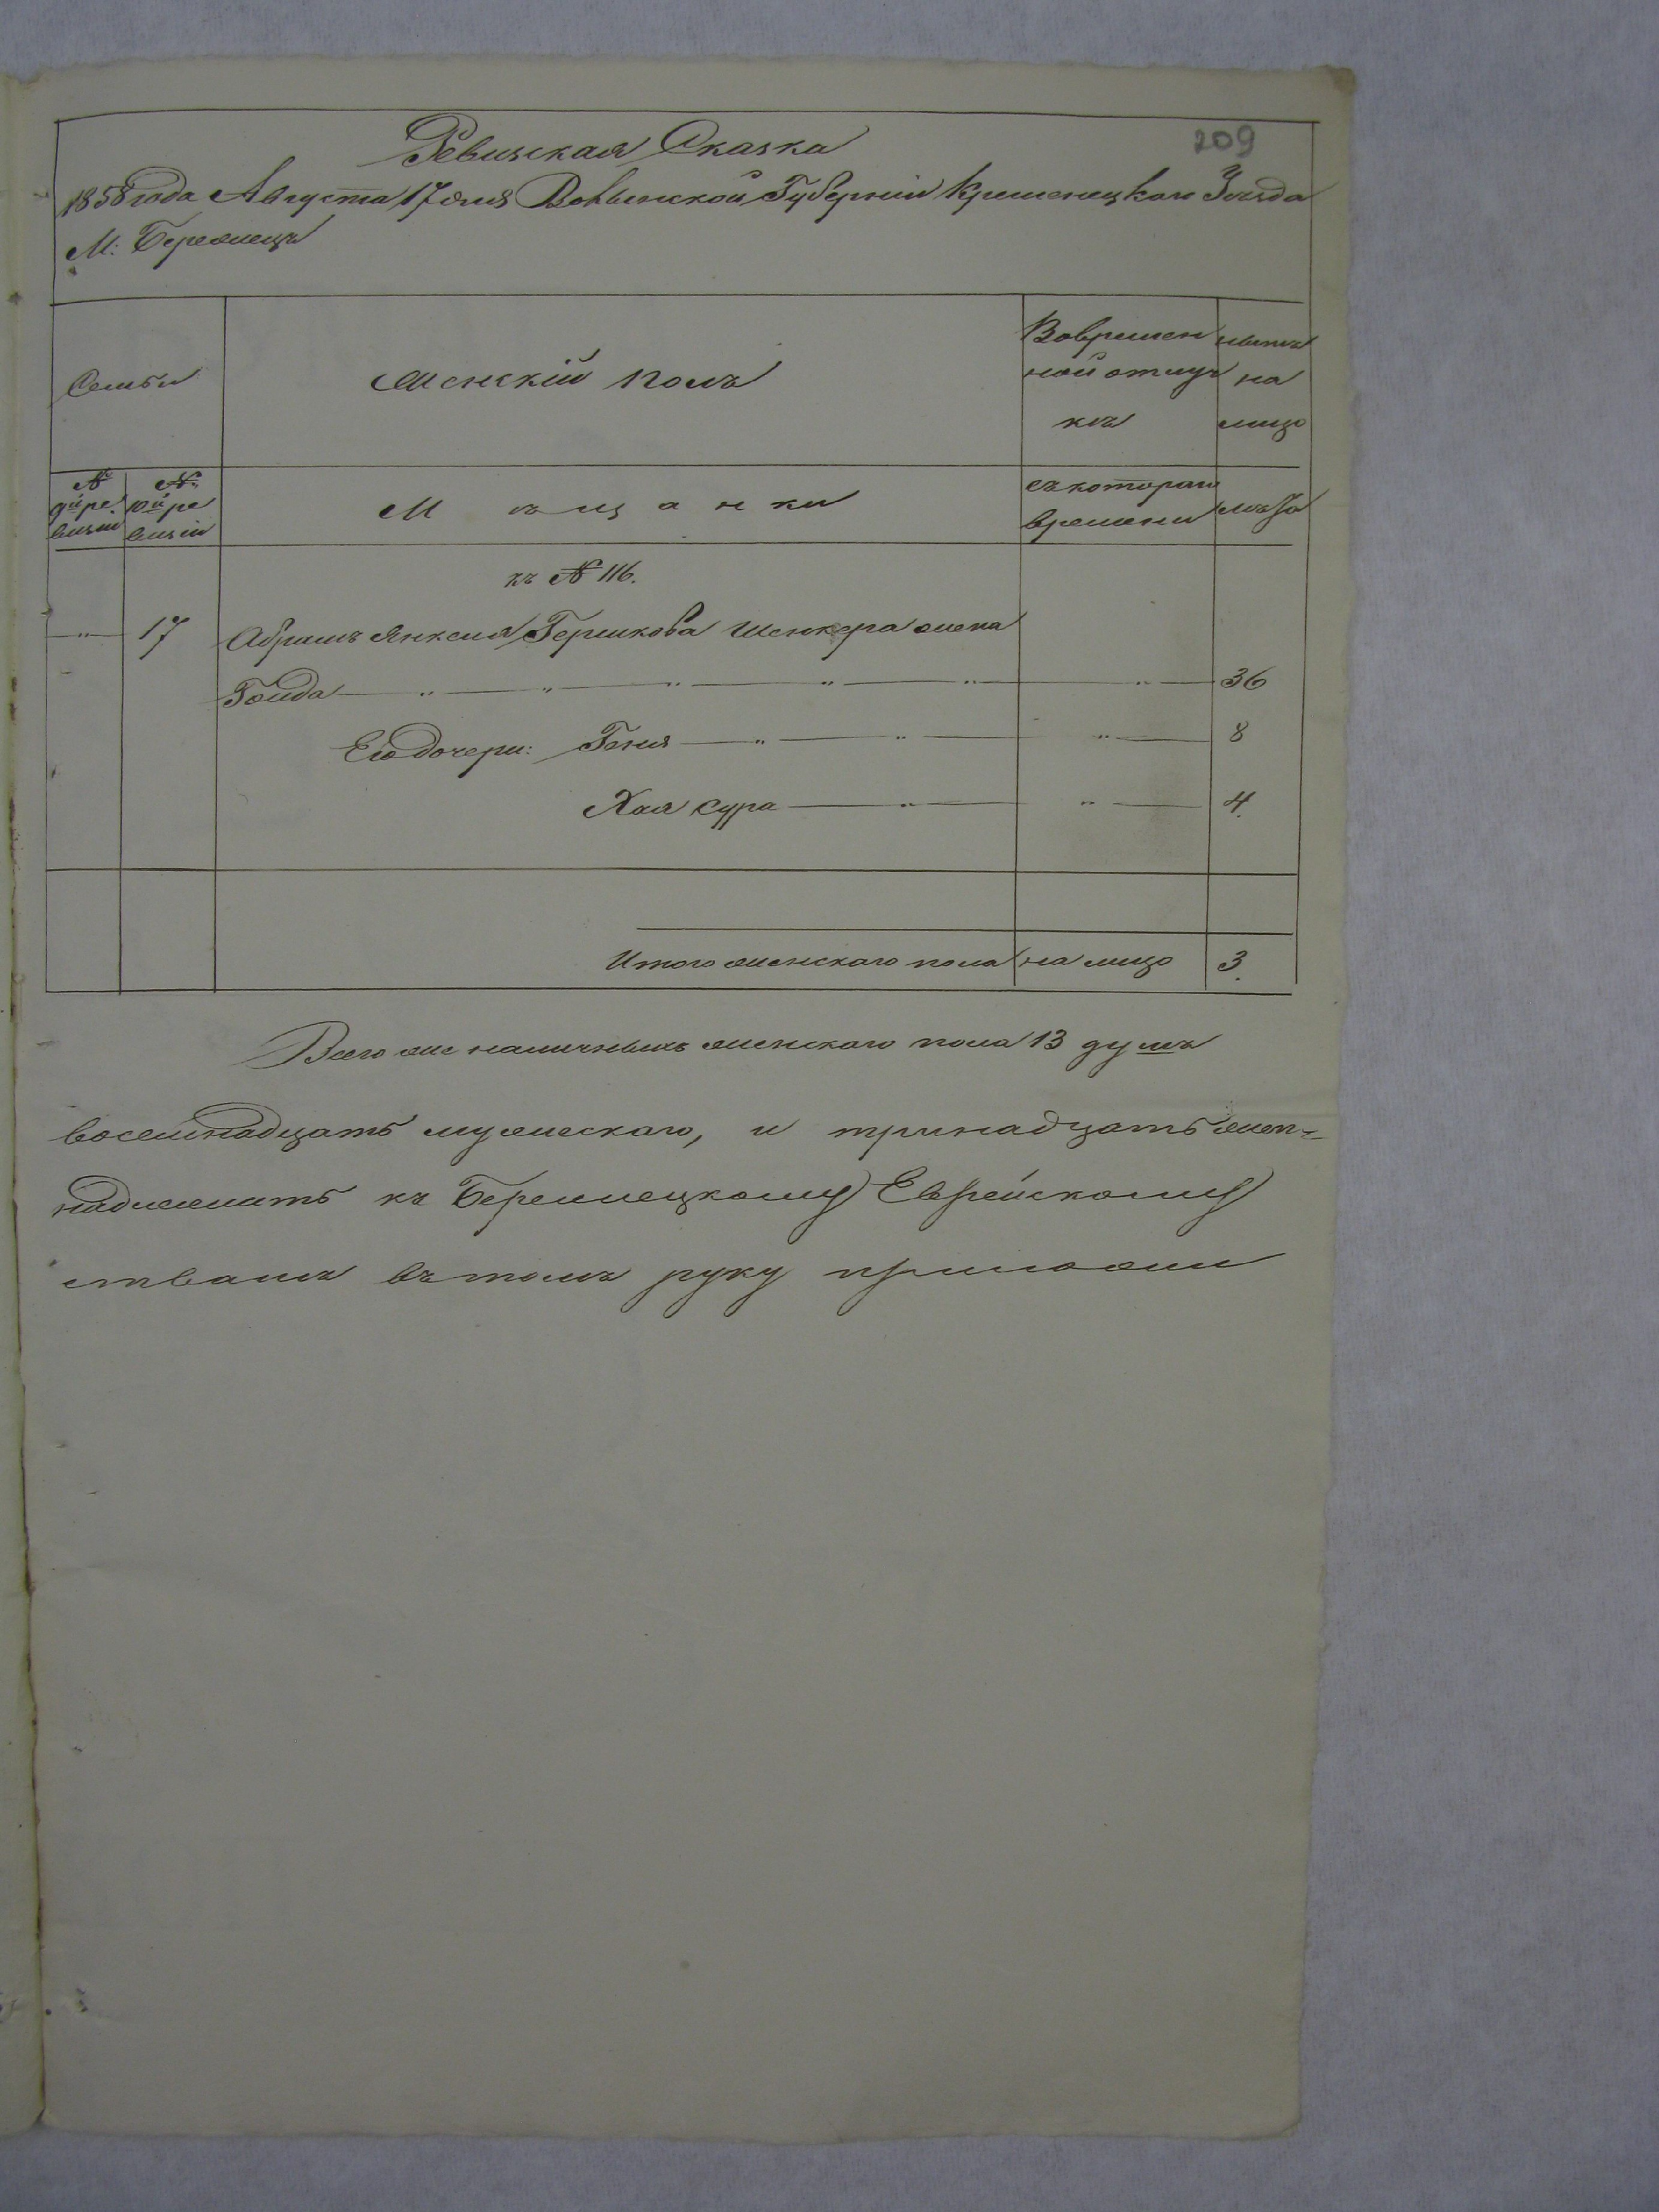 209
Ревизская Сказка
1858 года Августа 17 дня Волынской Губерніи Кременецкаго Уезда
М: Бережецъ
Семьи
Женскій полъ
Вовремен
ной отлуч
кѣ
нынѣ
на
лицо
№
9й ре
визіи
№
10й ре
визіи
Мѣщанки
съ котораго
времени
лѣта
къ № 116.
17 Абрамъ Янкеля Гершкова Шенкера жена
Гоцда 36
Его дочери: Геня 8
Хая Сура 4.
Итого женскаго пола на лицо 3.
Всего же наличныхъ женскаго пола 13 душъ
восемнадцать мужескаго, и тринадцать жен-
надлежитъ къ Бережецкому Еврейскому
ствамъ въ томъ руку приложи